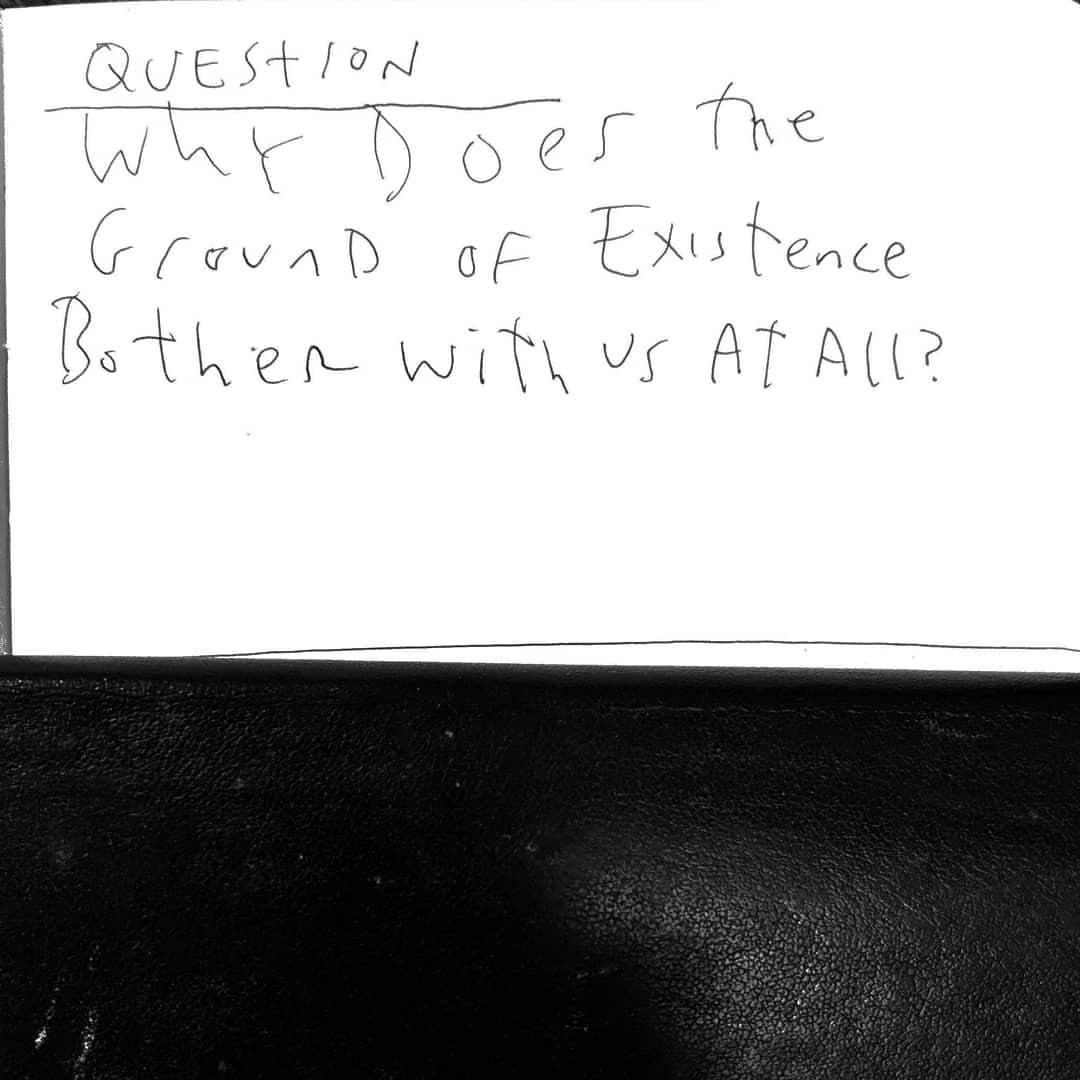 QUESTION
Why Does the
Ground of Existence
Bother with us At All?